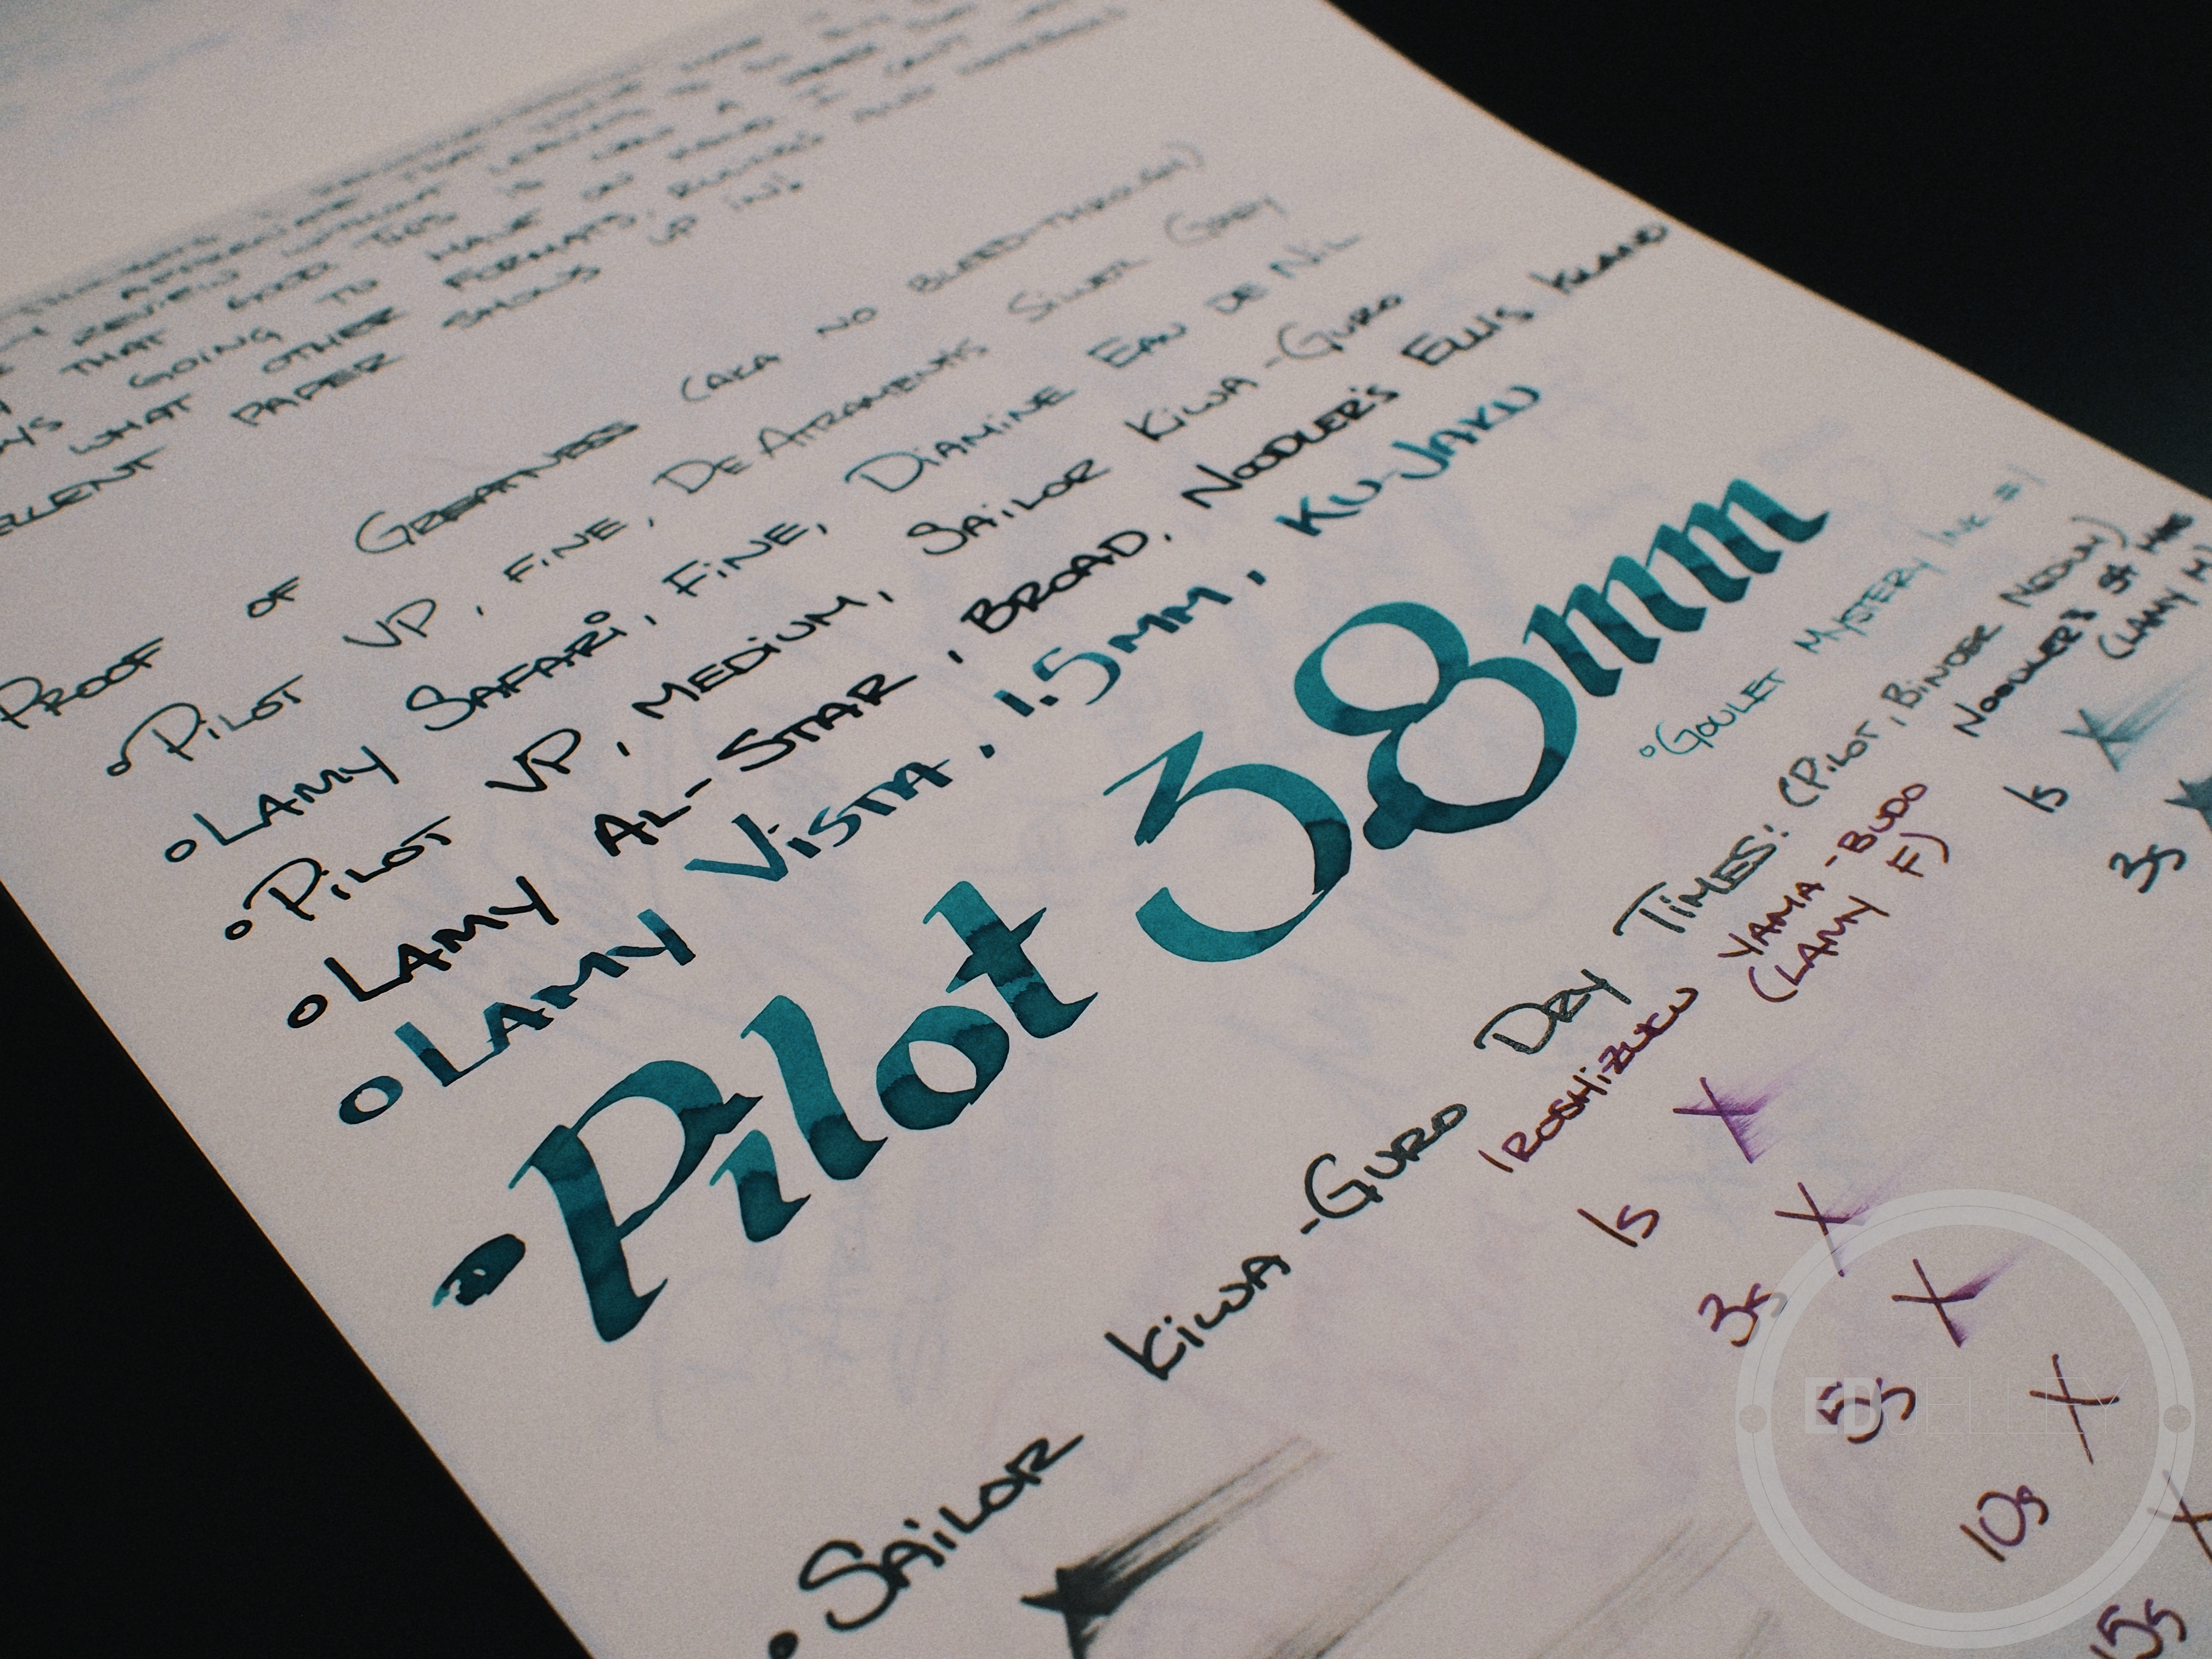 REVIEW WITHOUT
THAT GOOD THIS IS
GOING TO HAVE ON HAND
WHAT OTHER FORMATS, RULINGS AND
PAPER SHOWS UP IN!
PROOF OF GREATNESS (AKA NO BLEED-THROUGH)
PILOT VP, FINE, DE ATRAMENTIS SILVER GREY
LAMY SAFARI, FINE, DIAMINE EAU DE NIL
PILOT VP, MEDIUM, SAILOR KIWA-GURO
LAMY AL-STAR, BROAD, NOODLER'S ELLIS ISLAND
LAMY VISTA, 1.5MM, KU-JAKU
Pilot 3.8mm
GOULET MYSTERY INK #1
DRY TIMES: (PILOT, BINDER
SAILOR KIWA-GURO
IROSHIZUKU YAMA-BUDO
(LAMY F)
1s X
3s X
5s X
10s X
15s
NOODLER'S
(LAMY M)
1s X
3s
EDJELLEY